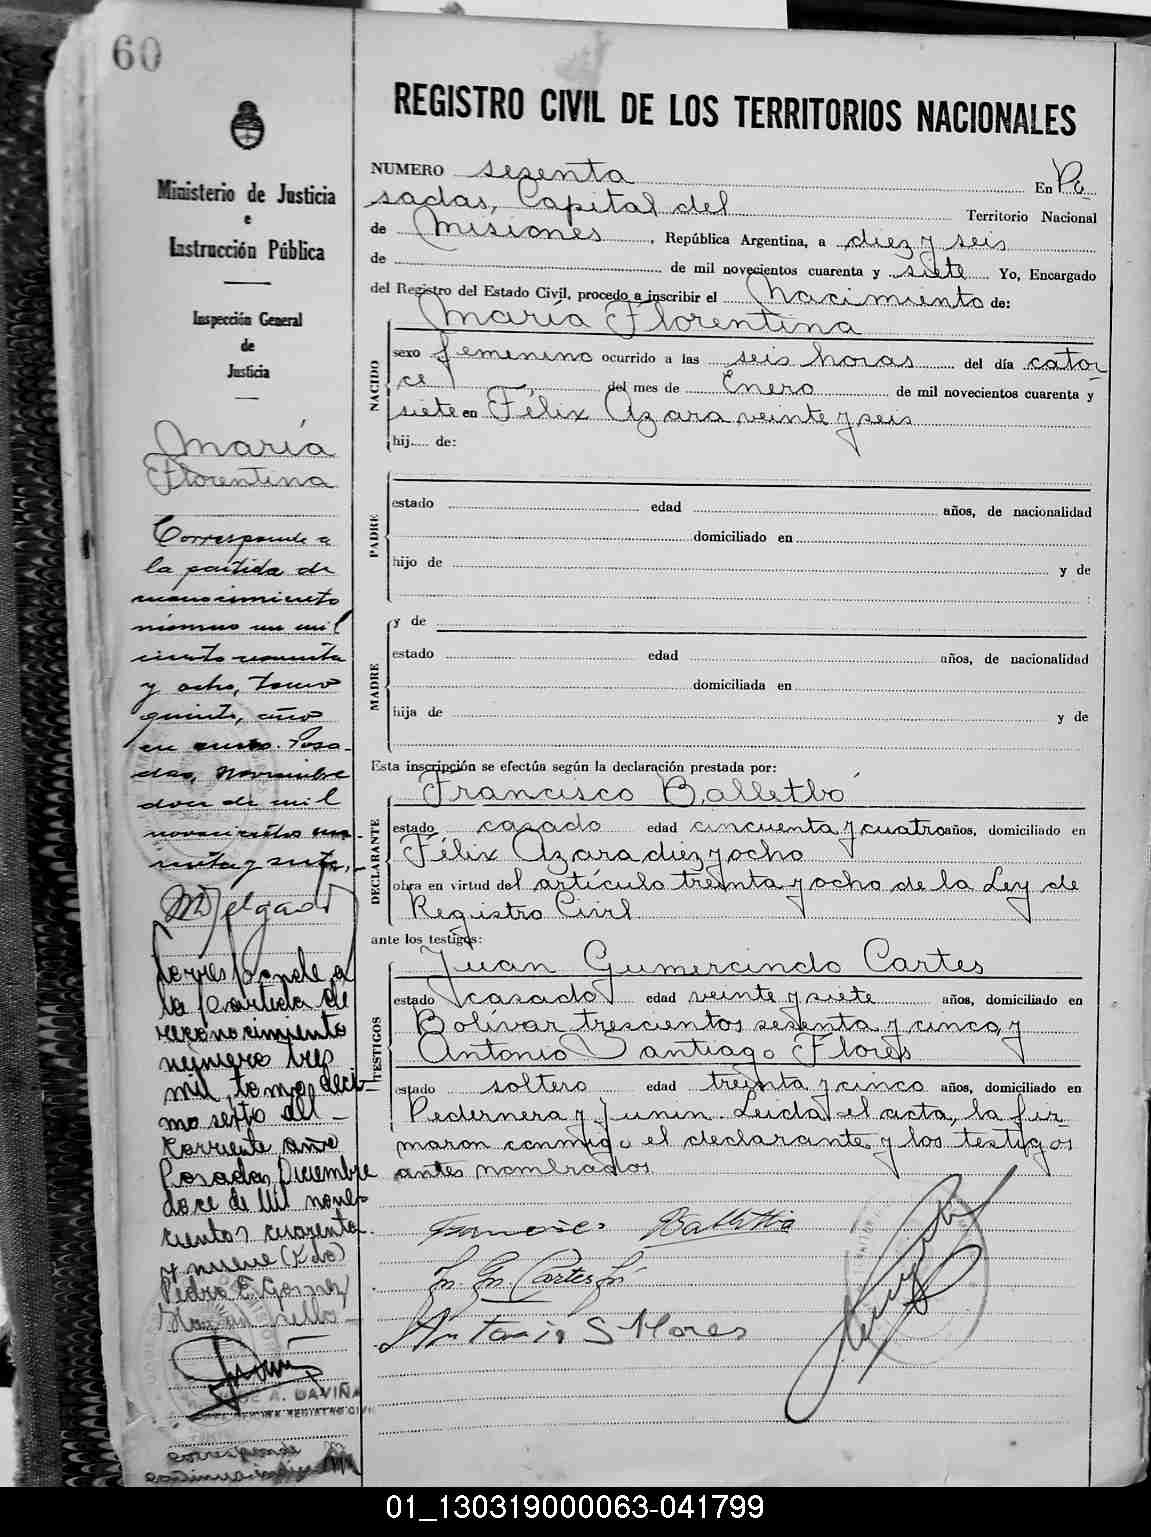 60
Ministerio de Justicia
e
Instrucción Pública
Inspección General
de
Justicia
María
Florentina
Corresponde a
la partida de
reconocimiento
número un mil
ciento noventa
y ocho, tomo
quinto, año
en curso. Posa-
das, Noviembre
doce de mil
novecientos cua-
renta y siete.
MDelgado
Corresponde a
la partida de
reconocimiento
número tres
mil, tomo deci-
mo sexto del
corriente año
Posadas, Diciembre
doce de mil nove-
cientos cuarenta
y nueve (Fdo)
Pedro E. Gomez
Hay un sello
A. DAVIÑA
REGISTRO CIVIL
corresponde
REGISTRO CIVIL DE LOS TERRITORIOS NACIONALES
NUMERO sesenta En Po
sadas, Capital del Territorio Nacional
de Misiones, República Argentina, a diez y seis
de de mil novecientos cuarenta y siete Yo, Encargado
del Registro del Estado Civil, procedo a inscribir el Nacimiento de:
María Florentina
NACIDO
sexo femenino ocurrido a las seis horas del día cator-
ce del mes de Enero de mil novecientos cuarenta y
siete en Félix Azara veinte y seis
hij de:
PADRE
estado edad años, de nacionalidad
domiciliado en
hijo de y de
y de
MADRE
estado edad años, de nacionalidad
domiciliada en
hija de y de
Esta inscripción se efectúa según la declaración prestada por:
Francisco Balletbó
DECLARANTE
estado casado edad cincuenta y cuatro años, domiciliado en
Félix Azara diez y ocho
obra en virtud del artículo treinta y ocho de la Ley de
Registro Civil
ante los testigos:
Juan Gumercindo Cartes
TESTIGOS
estado casado edad veinte y siete años, domiciliado en
Bolívar trescientos sesenta y cinco y
Antonio Santiago Flores
estado soltero edad treinta y cinco años, domiciliado en
Pedernera y Junin. Leida el acta, la fir-
maron conmigo el declarante y los testigos
antes nombrados
Francisco Balletbó
Jn. Gm. Cartes
Antonio S Flores
01_130319000063-041799